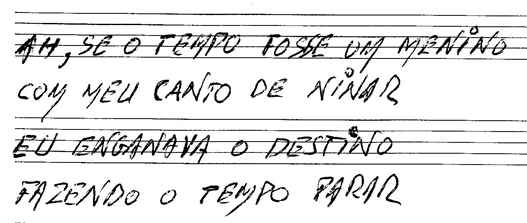 AH, SE O TEMPO FOSSE UM MENINO
COM MEU CANTO DE NINAR
EU ENGANAVA O DESTINO
FAZENDO O TEMPO PARAR